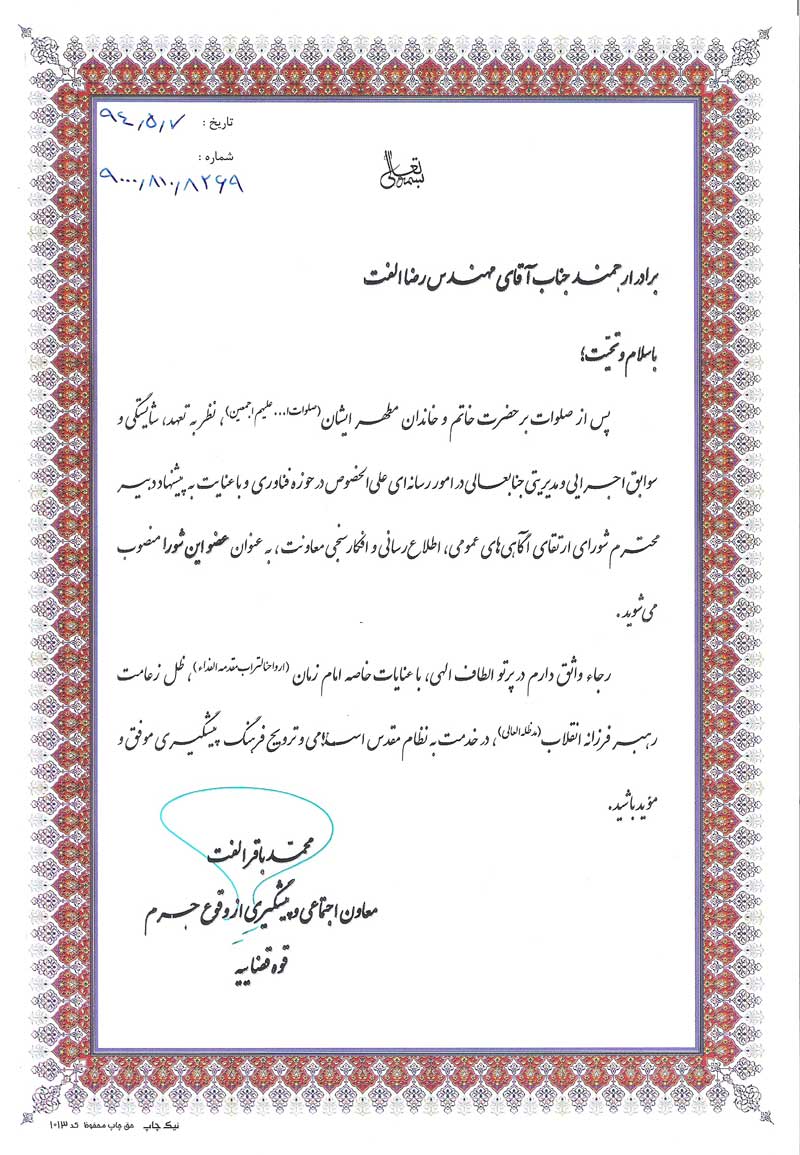 تاریخ : ۹۴/۵/۷
شماره : ۹۰۰۰/۸۱۰/۸۲۶۹
بسمه تعالی
برادر ارجمند جناب آقای مهندس رضا الفت
باسلام و تحیّت؛
پس از صلوات بر حضرت خاتم و خاندان مطهر ایشان (صلوات ا... علیهم اجمعین)، نظر به تعهد، شایستگی و
سوابق اجرایی و مدیریتی جنابعالی در امور رسانه ای علی الخصوص در حوزه فناوری و با عنایت به پیشنهاد دبیر
محترم شورای ارتقای آگاهی های عمومی، اطلاع رسانی و افکارسنجی معاونت، به عنوان عضو این شورا منصوب
می شوید.
رجاء واثق دارم در پرتو الطاف الهی، با عنایات خاصه امام زمان (ارواحنا لتراب مقدمه الفداء)، ظل زعامت
رهبر فرزانه انقلاب (مدظله العالی)، در خدمت به نظام مقدس اسلامی و ترویج فرهنگ پیشگیری موفق و
مؤید باشید.
محمّد باقر الفت
معاون اجتماعی و پیشگیری از وقوع جرم
قوه قضاییه
نیک چاپ حق چاپ محفوظ کد ۱۰۱۳